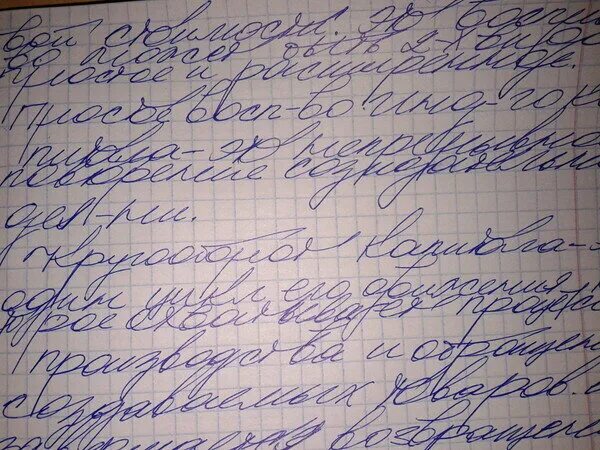 вой стоимости. это воспр
во может быть 2 типов
простое и расширенное.
Простое восп-во чина-го ка
питала - это непрерывное
повторение созидательной
дея-ти.
Кругооборот капитала -
один цикл его движения
процесс
производства и обращен
создаваемых товаров. и
возвращени